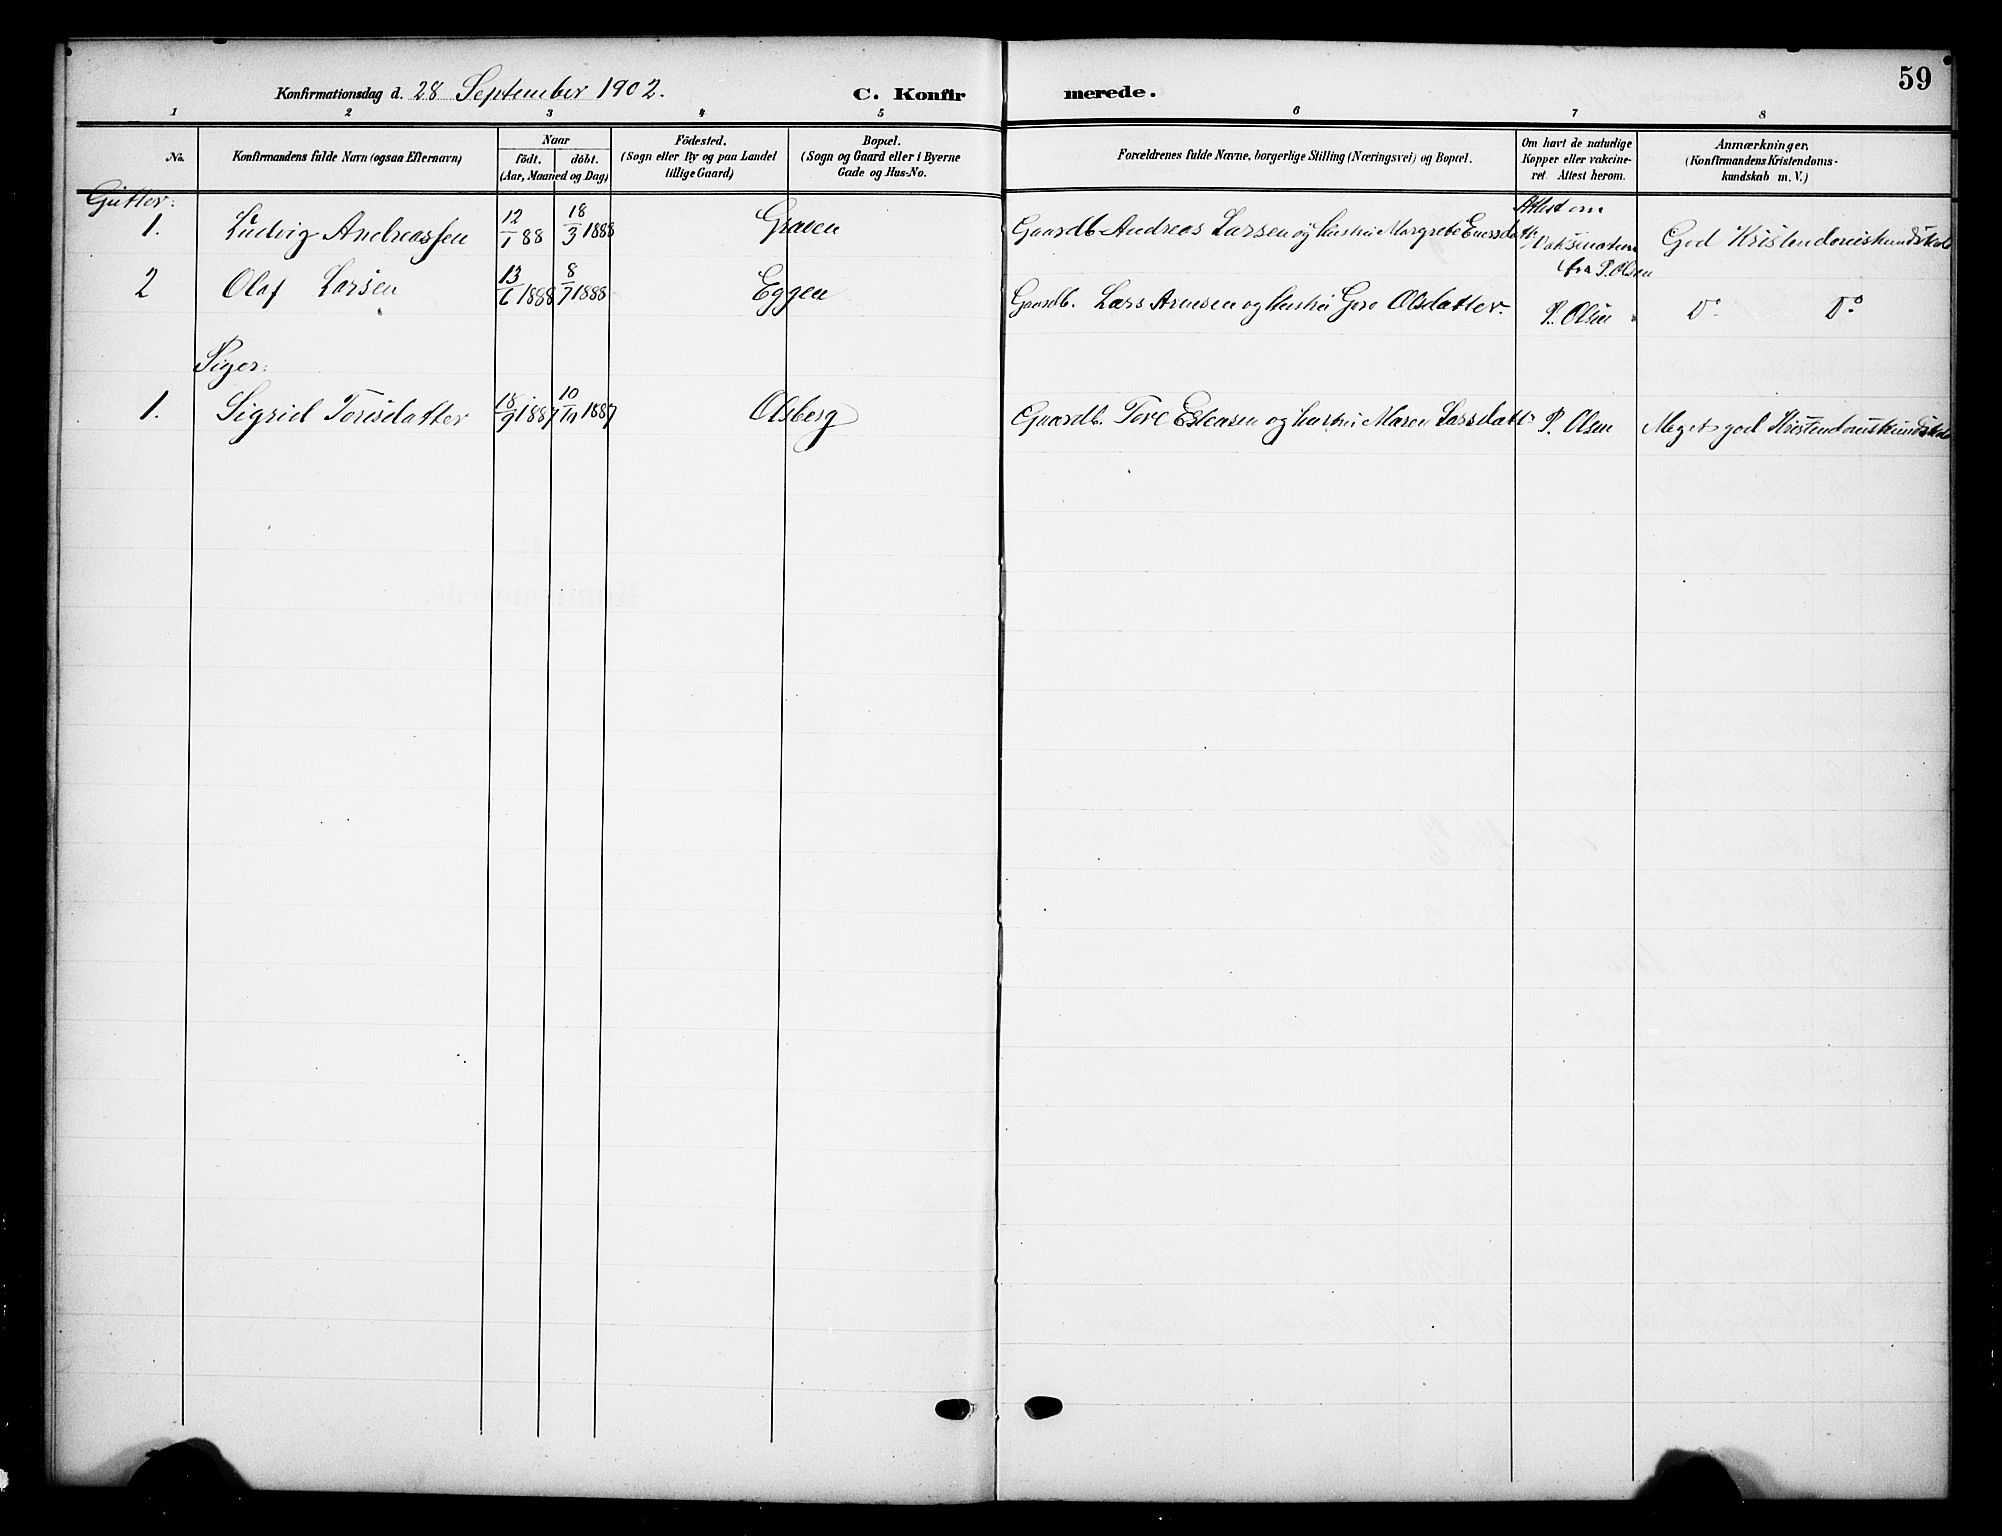 59
Konfirmationsdag d. 28 September 1902. C. Konfirmerede.
1 2 3 4 5 6 7 8
No. Konfirmandens fulde Navn (ogsaa Efternavn) Naar födt. döbt. (Aar, Maaned og Dag) Födested. (Sogn eller By og paa Landet tillige Gaard) Bopæl. (Sogn og Gaard eller i Byerne Gade og Hus-No. Forældrenes fulde Navne, borgerlige Stilling (Næringsvei) og Bopæl. Om havt de naturlige Kopper eller vakcineret. Attest herom. Anmærkninger. (Konfirmandens Kristendomskundskab m. V.)
Gutter:
1. Ludvig Andreassen 12/1 88 18/3 1888 Graven Gaardb. Andreas Larsen og Hustru Margrete Attest om Vaksination fra P. Olsen God Kristendomskundskab
2 Olaf Larsen 13/6 1888 8/7 1888 Eggen Gaardb. Lars Arnesen og Hustru Goro Olsdatter P. Olsen Do Do
Piger:
1. Sigrid Toresdatter 18/9 1887 10/10 1887 Olsberg Gaardb. Tore Estensen og hustru Maren Larsdatt. P. Olsen Meget god Kristendomskundskab